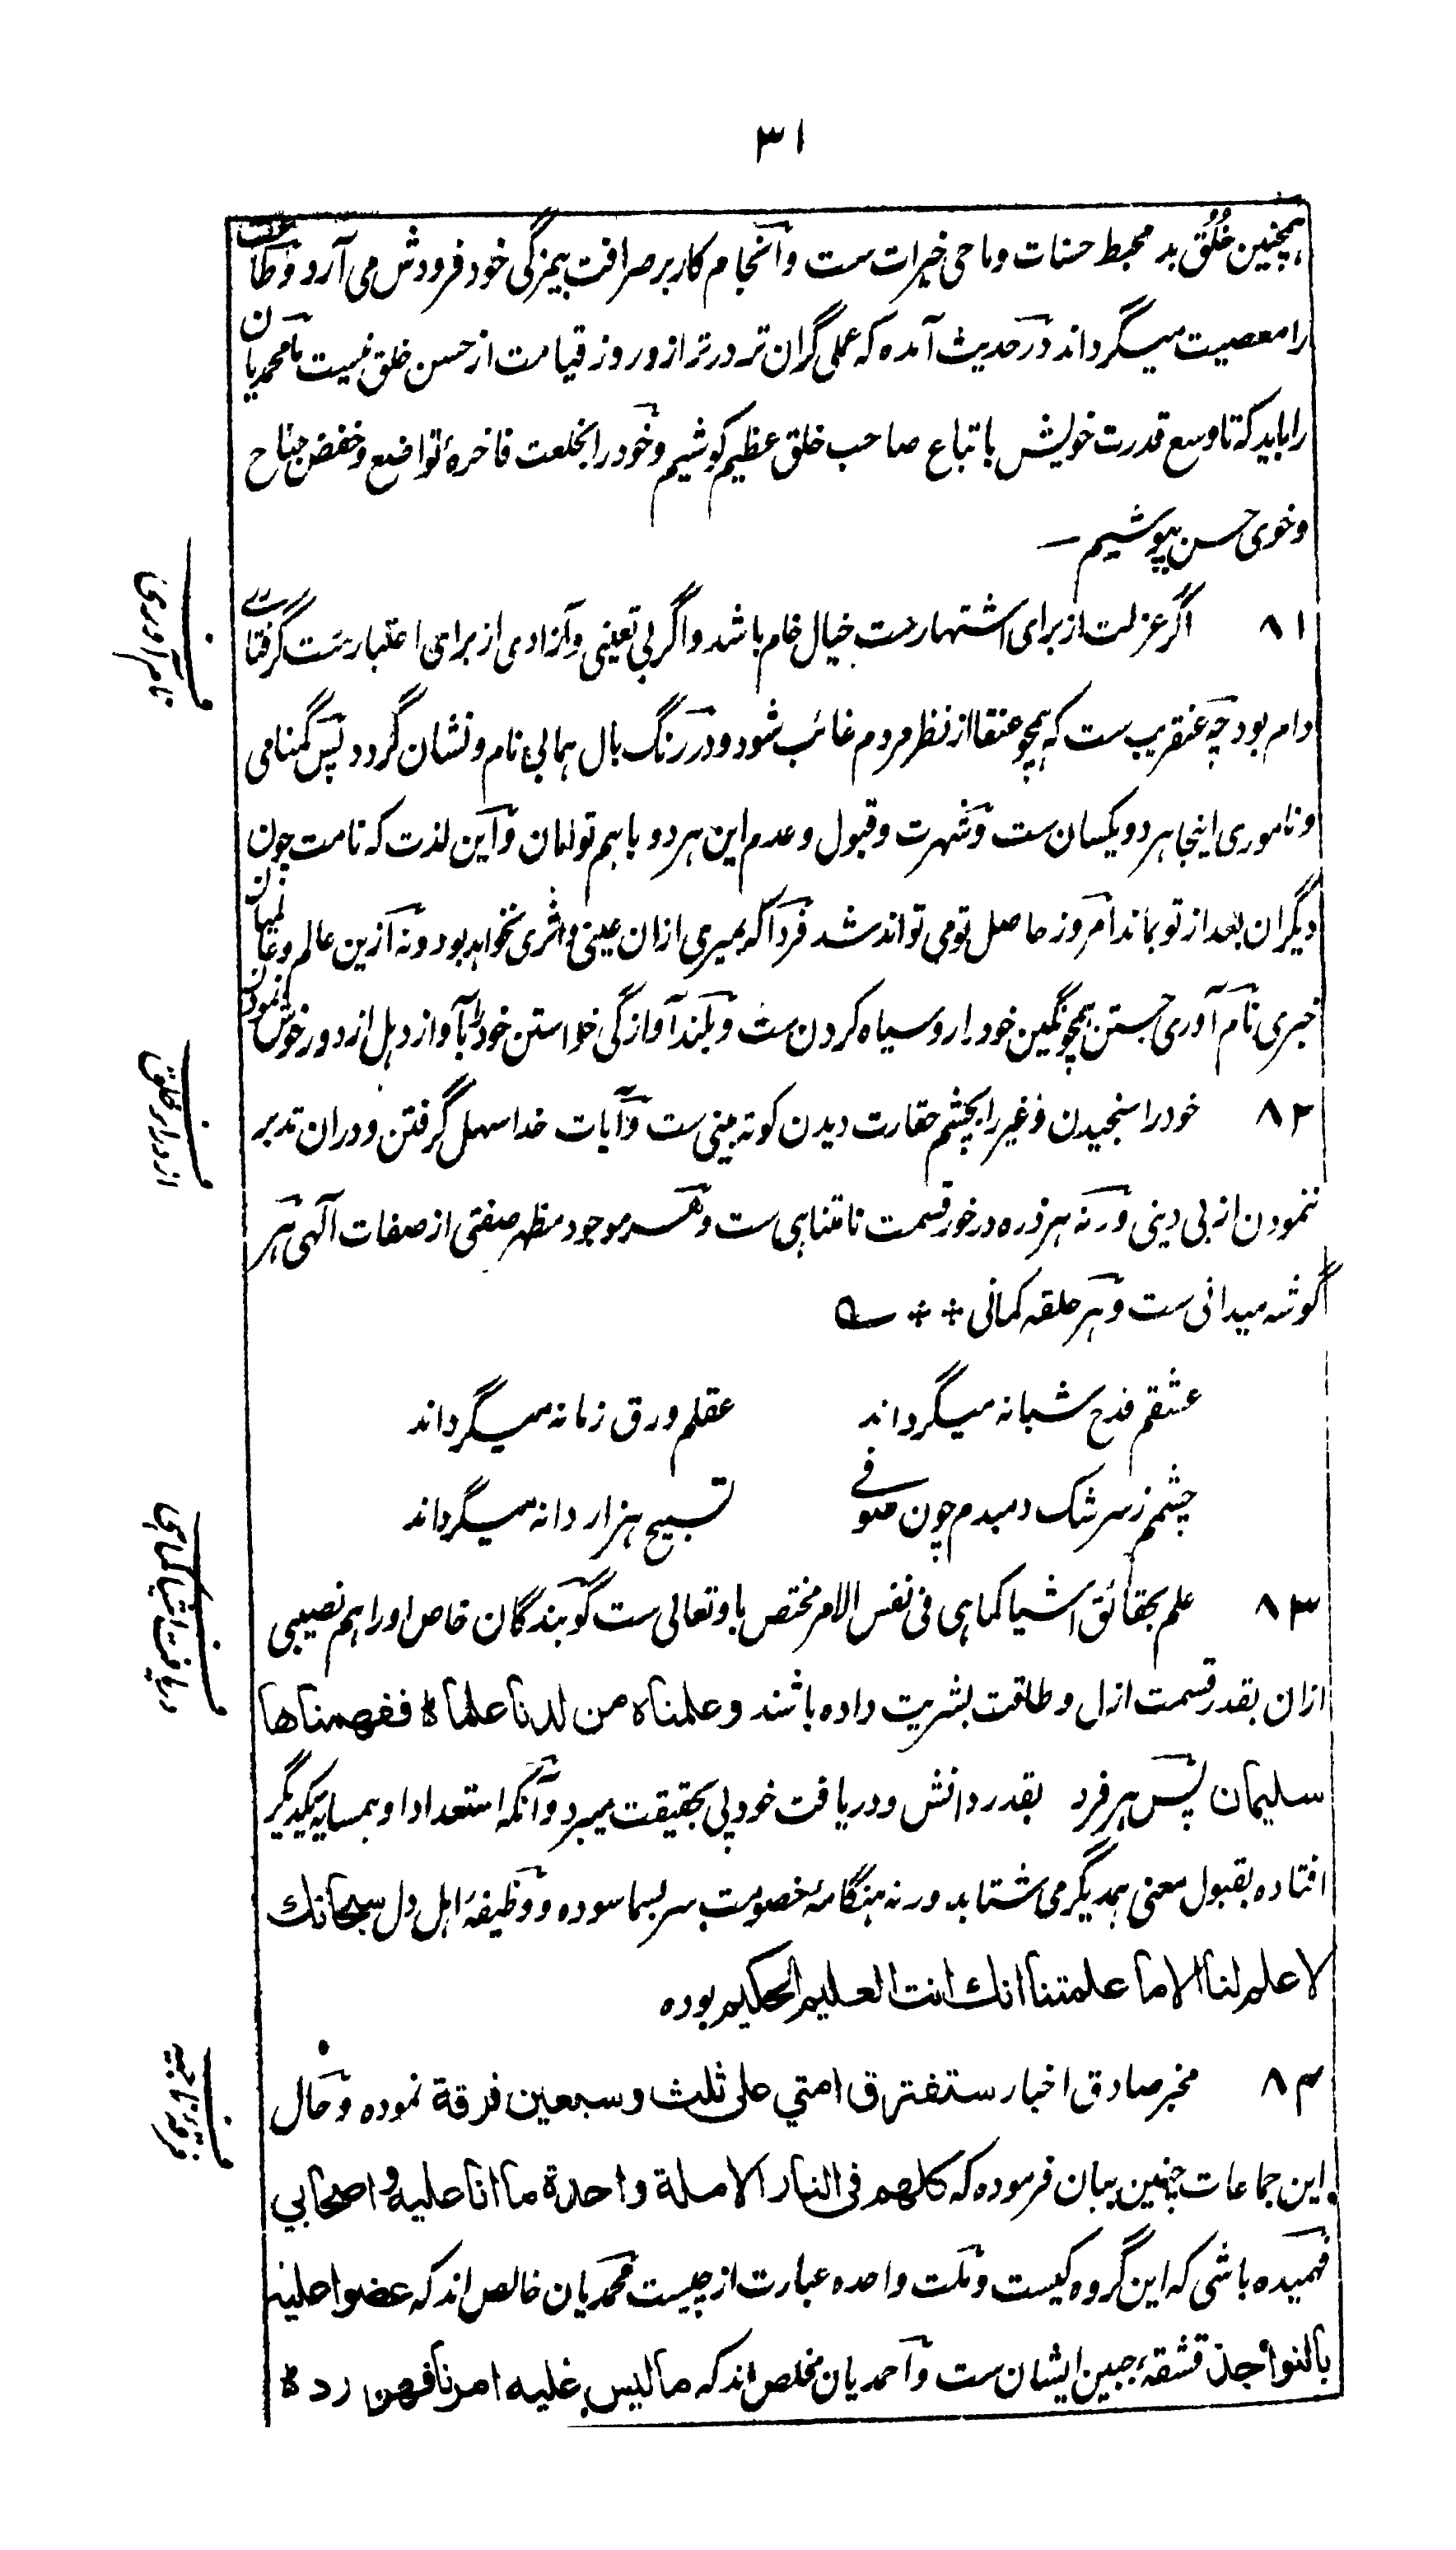 ۳۱
همچنین خُلُق بد محبط حسنات و ماحی خیرات ست و انجام کار بر صرافت بیمزگی خود فرودش می آرد و طاعت
را معصیت میگرداند در حدیث آمده که عملی گران تر در ترازو روز قیامت از حسن خلق نیست ما محمدیان
را باید که تا وسع قدرت خویش باتباع صاحب خلق عظیم کوشیم و خود را بخلعت فاخرهٔ تواضع و خفض جناح
و خوی حسن بپوشیم ــ
۸۱ اگر عزلت از برای اشتهارست خیال خام باشد و اگر بی تعینی و آزادی از برای اعتبارست گرفتاری
دام بود چه عنقریب ست که همچو عنقا از نظر مردم غائب شود و در رنگ بال هما بی نام و نشان گردد پس گمنامی
و ناموری اینجا هر دو یکسان ست و شهرت و قبول و عدم این هر دو با هم توامان و این لذت که نامت چون
دیگران بعد از تو بماند امروز حاصل تو می تواند شد فردا که بمیری ازان عینی و اثری نخواهد بود و نه ازین عالم و عالمیان
خبری نام آوری جستن همچو نگین خود را روسیاه کردن ست و بلند آوازگی خواستن خود را بآواز دهل از دور خوش نمودن
۸۲ خود را سنجیدن و غیر را بچشم حقارت دیدن کوته بینی ست و آیات خدا سهل گرفتن و دران تدبر
ننمودن از بی دینی ورنه هر ذره در خور قسمت نامتناهی ست و هر موجود مظهر صفتی از صفات الهی هر
گوشه میدانی ست و هر حلقه کمانی
عشقم قدح شبانه میگرداند عقلم ورق زمانه میگرداند
چشمم ز سرشک دمبدم چون صوفی تسبیح هزار دانه میگرداند
۸۳ علم بحقائق اشیا کماهی فی نفس الامر مختص باو تعالی ست گو بندگان خاص او را هم نصیبی
ازان بقدر قسمت ازل و طاقت بشریت داده باشند وعلمناه من لدنا علما ففهمناها
سلیمان پس هر فرد بقدر دانش و دریافت خود پی بحقیقت میبرد و آنکه استعداد او همسایه یکدیگر
افتاده بقبول معنی همدیگر می شتابد ورنه هنگامهٔ خصومت سر بسما سوده و وظیفهٔ اهل دل سبحانك
لا علم لنا الا ما علمتنا انك انت العلیم الحکیم بوده
۸۴ مخبر صادق اخبار ستفترق امتي على ثلث وسبعین فرقة نموده و حال
این جماعات چنین بیان فرموده که کلهم فی النار الا ملة واحدة ما انا علیه واصحابي
فهمیده باشی که این گروه کیست و ملت واحده عبارت از چیست محمدیان خالص اند که عضوا علیها
بالنواجذ قشقهٔ جبین ایشان ست و احمدیان مخلص اند که ما لیس علیه امرنا فهو رد
ف نام آوری
ف
ف دریافت اشیا کماهی
ف فرقهٔ ناجیه